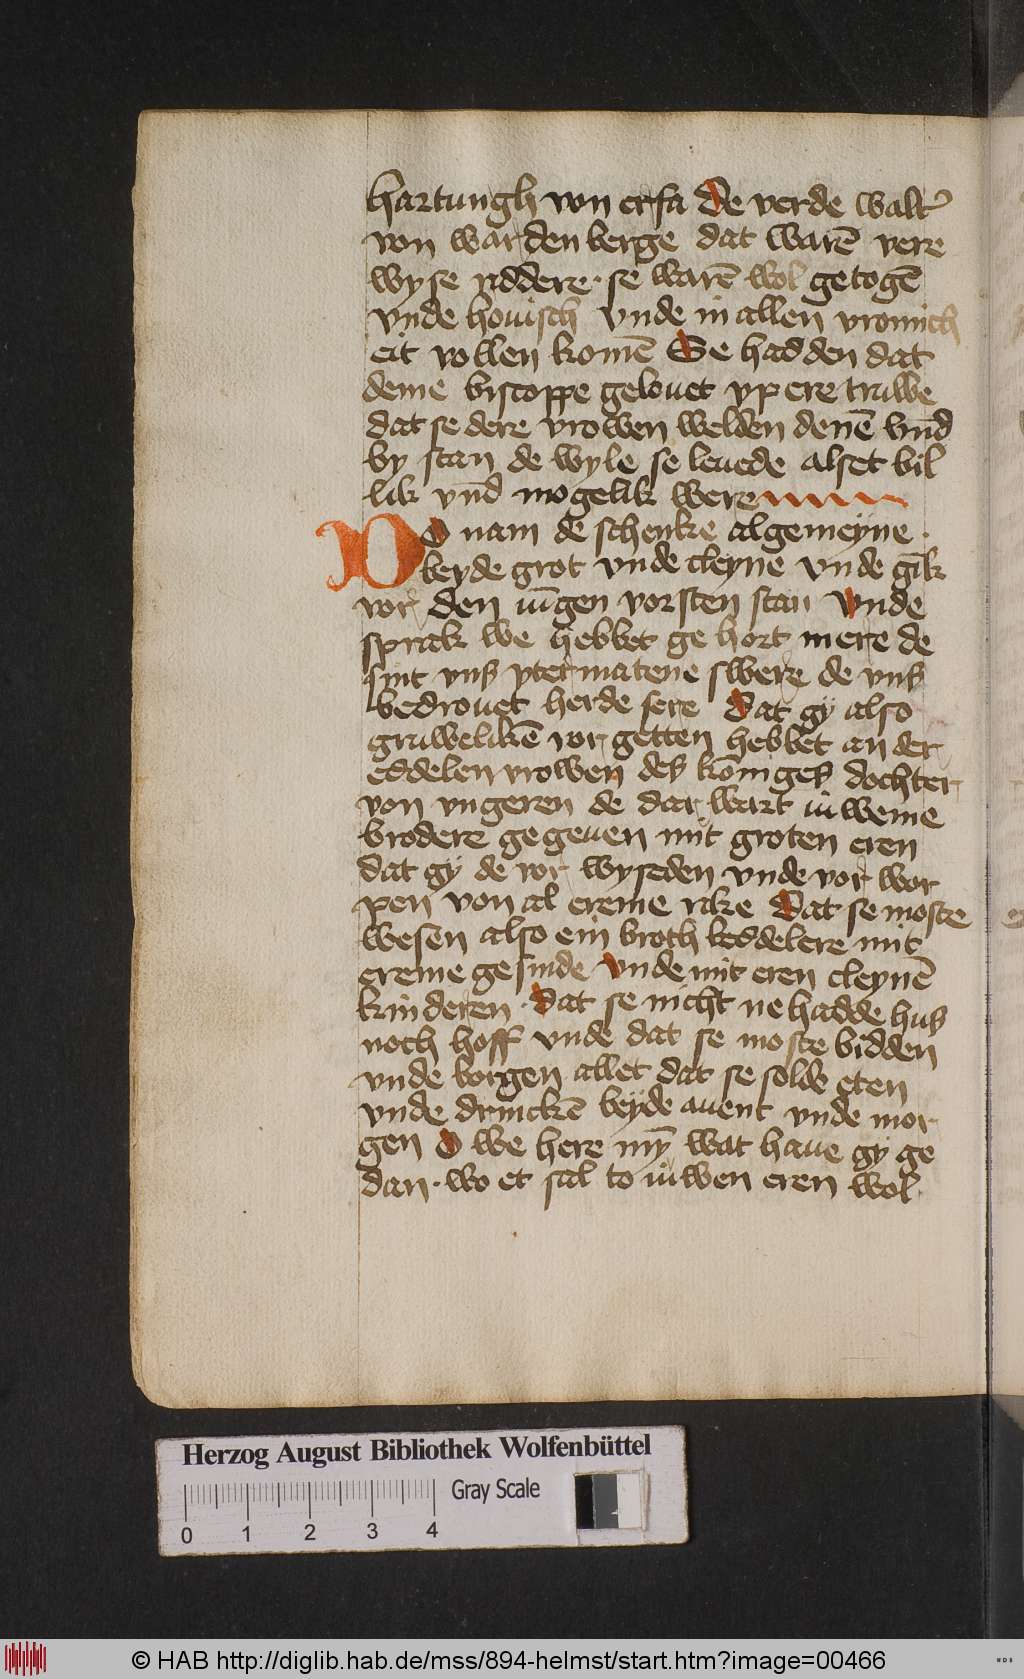 hartungh von erfa De verde walt᷑
von wardenberge dat warē vere
wyse riddere · se warē wol getogē
vnde houisch vnde in allen vromich
eit vollen komē Se hadden dat
deme biscoppe gelouet vp ere truwe
dat se dere vrowen welden denē vnd̄
by stan de wyle se leuede alset bil
lik vnd̄ mogelik were
Do nam de schenke algemeyne ·
beyde grot vnde cleyne vnde gīk
vor den iūgen vorsten stan vnde
sprak we hebbet ge hort mere de
sint vns vtermatene swere de vns
bedrouet herde sere dat gy also
gruwelikē vor getten hebbet an der
eddelen vrowen des koninges dochter
von vngeren de dar wart iuweme
brodere gegeuen mit groten eren
dat gy de vor wyseden vnde vor wor
pen von al ereme rike dat se moste
wesen also ein broth beddelere mit
ereme gesinde vnde mit eren cleynē
kinderen · dat se nicht ne hadde hus
noch hoff vnde dat se moste bidden
vnde borgen allet dat se solde eten
vnde drinckē beyde auent vnde mor
gen O we here mȳ wat haue gy ge
dan · wo et sal to iuwen eren wol
Herzog August Bibliothek Wolfenbüttel
Gray Scale
0 1 2 3 4
© HAB http://diglib.hab.de/mss/894-helmst/start.htm?image=00466